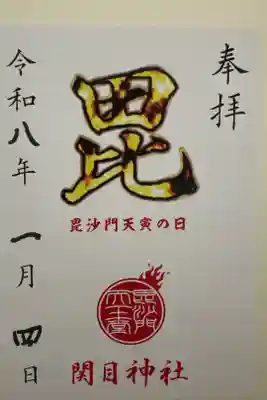 奉拝
毘
毘沙門天寅の日
関目神社
令和八年一月四日